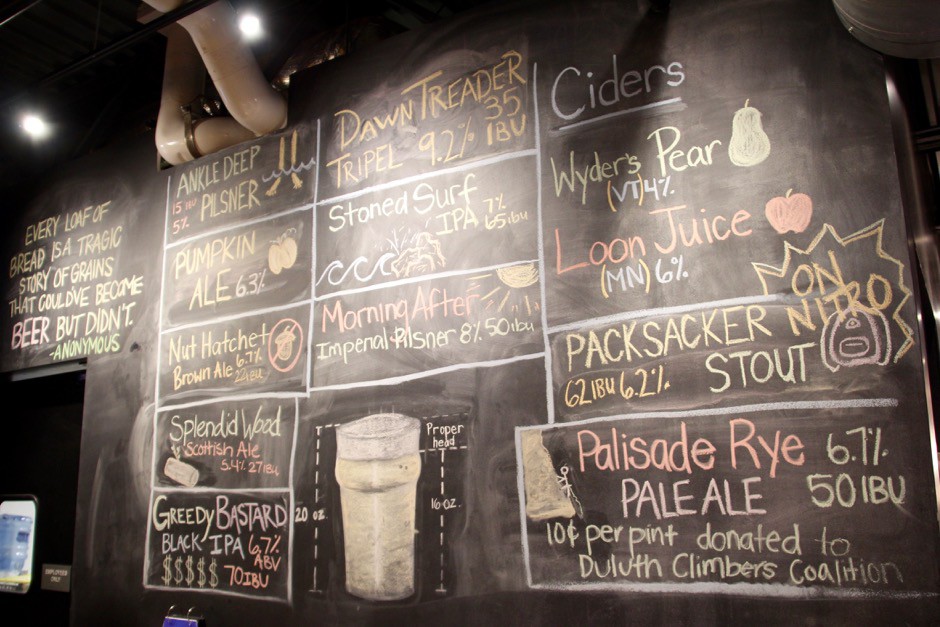 EVERY LOAF OF
BREAD IS A TRAGIC
STORY OF GRAINS
THAT COULD'VE BECOME
BEER BUT DIDN'T.
-ANONYMOUS
ANKLE DEEP
15 IBU PILSNER
5%
PUMPKIN
ALE 6.3%
Nut Hatchet
Brown Ale 6.7%
22 IBU
Splendid Wood
Scottish Ale
5.4% 27 IBU
GREEDY BASTARD
BLACK IPA 6.7%
ABV
$$$$$ 70 IBU
DAWN TREADER
TRIPEL 9.2% 35
IBU
Stoned Surf
IPA 7%
65 ibu
Morning After
Imperial Pilsner 8% 50 ibu
Proper
head
20 oz.
16 oz.
Ciders
Wyder's Pear
(VT) 4%
Loon Juice
(MN) 6%
ON
NITRO
PACKSACKER
STOUT
62 IBU 6.2%
Palisade Rye 6.7%
PALE ALE 50 IBU
10¢ per pint donated to
Duluth Climbers Coalition
EMPLOYEES
ONLY